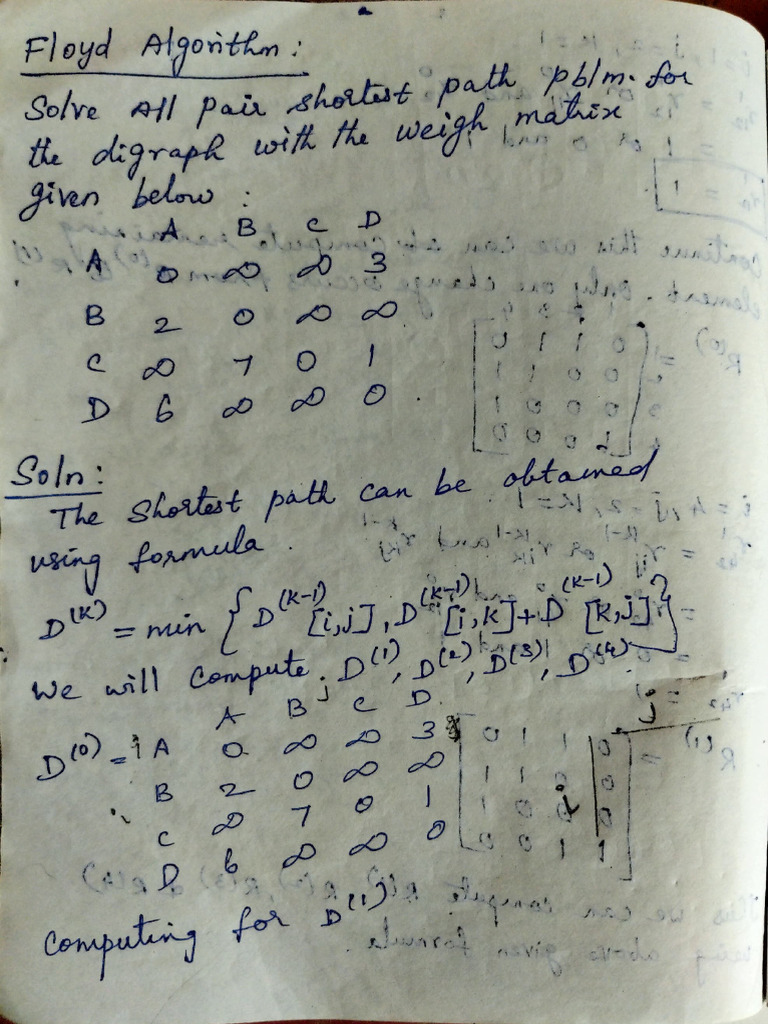 Floyd Algorithm:
Solve All pair shortest path pblm. for
the digraph with the weigh matrix
given below :
A B C D
A 0 ∞ ∞ 3
B 2 0 ∞ ∞
C ∞ 7 0 1
D 6 ∞ ∞ 0
Soln:
The Shortest path can be obtained
using formula.
D^(K) = min { D^(K-1) [i,j], D^(K-1) [i,K] + D^(K-1) [K,j] }
We will compute D^(1), D^(2), D^(3), D^(4).
j
A B C D
D^(0) = i A 0 ∞ ∞ 3
B 2 0 ∞ ∞
C ∞ 7 0 1
D 6 ∞ ∞ 0
Computing for D^(1)